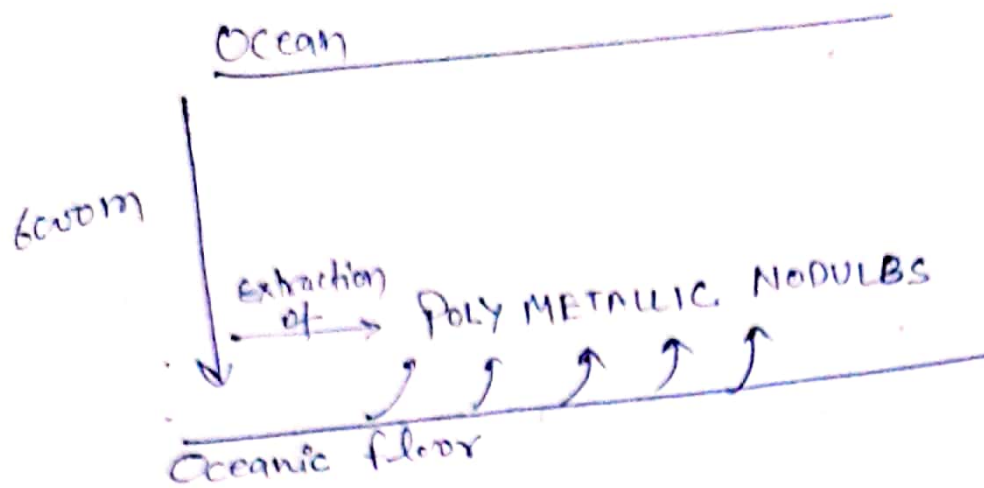 Ocean
6000m
extraction
of
POLY METALLIC NODULES
Oceanic floor